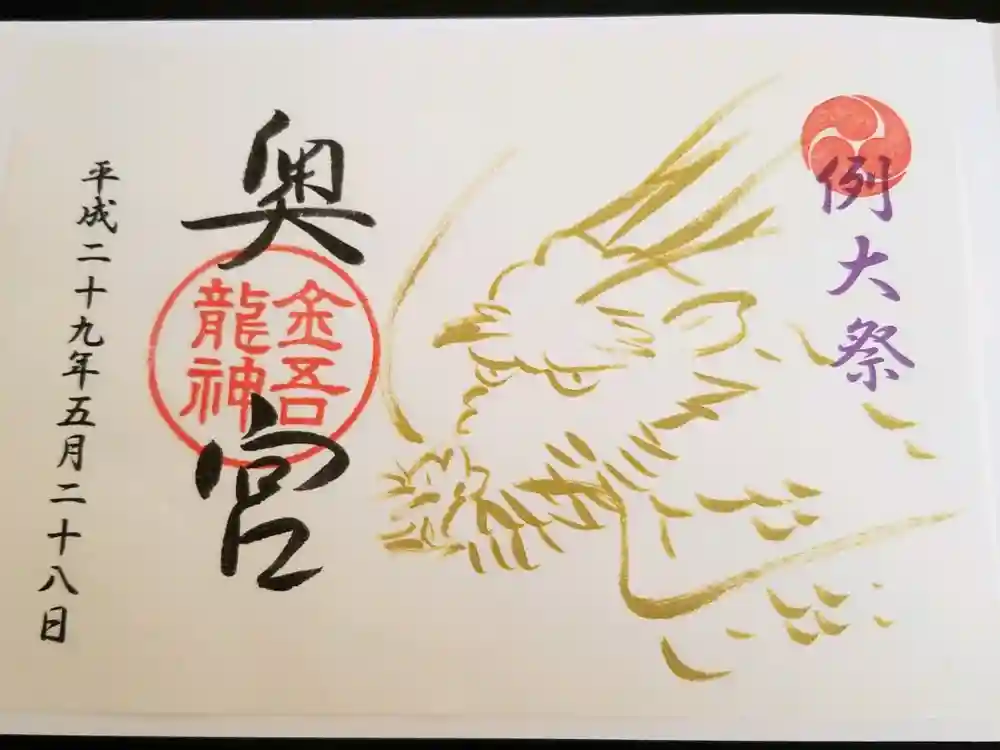 例大祭
奥宮
金吾
龍神
平成二十九年五月二十八日